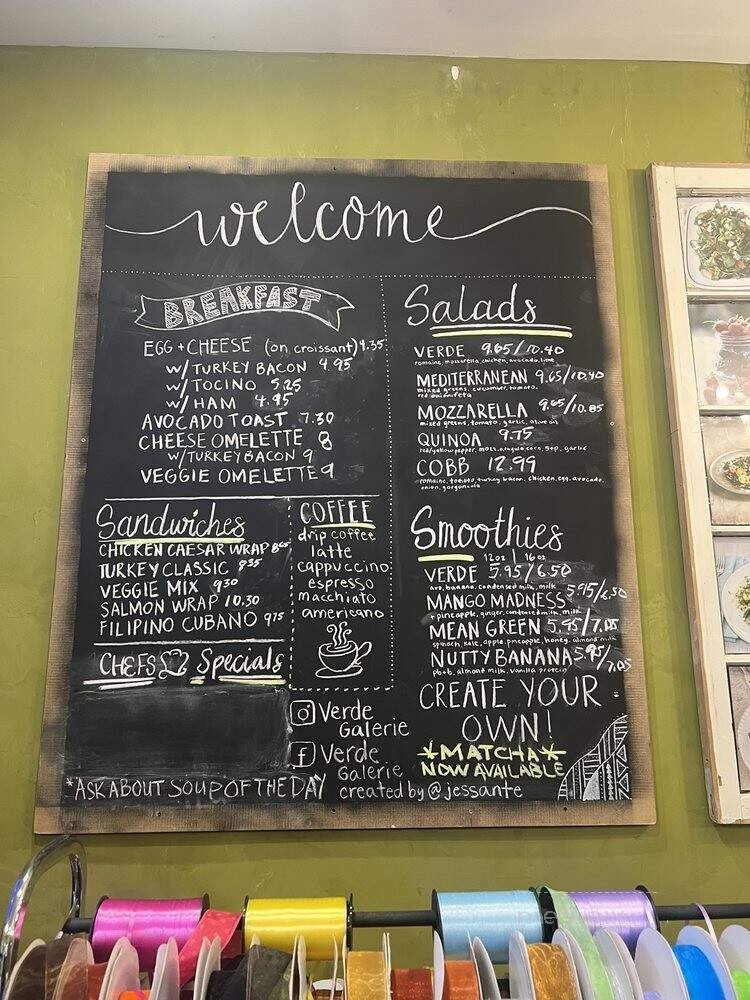 welcome
BREAKFAST
EGG + CHEESE (on croissant) 4.35
w/ TURKEY BACON 4.95
w/ TOCINO 5.25
w/ HAM 4.95
AVOCADO TOAST 7.30
CHEESE OMELETTE 8
w/ TURKEY BACON 9
VEGGIE OMELETTE 9
Sandwiches
CHICKEN CAESAR WRAP
TURKEY CLASSIC
VEGGIE MIX 9.30
SALMON WRAP 10.30
FILIPINO CUBANO 9.75
CHEFS Specials
*ASK ABOUT SOUP OF THE DAY
COFFEE
drip coffee
latte
cappuccino
espresso
macchiato
americano
Verde
Galerie
f Verde
Galerie
created by @jessante
Salads
VERDE 9.65/10.40
romaine, mozzarella, chicken, avocado, lime
MEDITERRANEAN 9.65/10.40
mixed greens, cucumber, tomato,
red onion, feta
MOZZARELLA 9.65/10.85
mixed greens, tomato, garlic, olive oil
QUINOA 9.75
red/yellow pepper, mozz, arugula, corn, s+p, garlic
COBB 12.99
romaine, tomato, turkey bacon, chicken, egg, avocado,
onion, gorgonzola
Smoothies
12oz | 16oz
VERDE 5.95/6.50
avo, banana, condensed milk, milk
MANGO MADNESS 5.95/6.50
+ pineapple, ginger, condensed milk, milk
MEAN GREEN 5.95/7.05
spinach, kale, apple, pineapple, honey, almond milk
NUTTY BANANA 5.95/
7.05
pb+b, almond milk, vanilla protein
CREATE YOUR
OWN!
*MATCHA*
NOW AVAILABLE